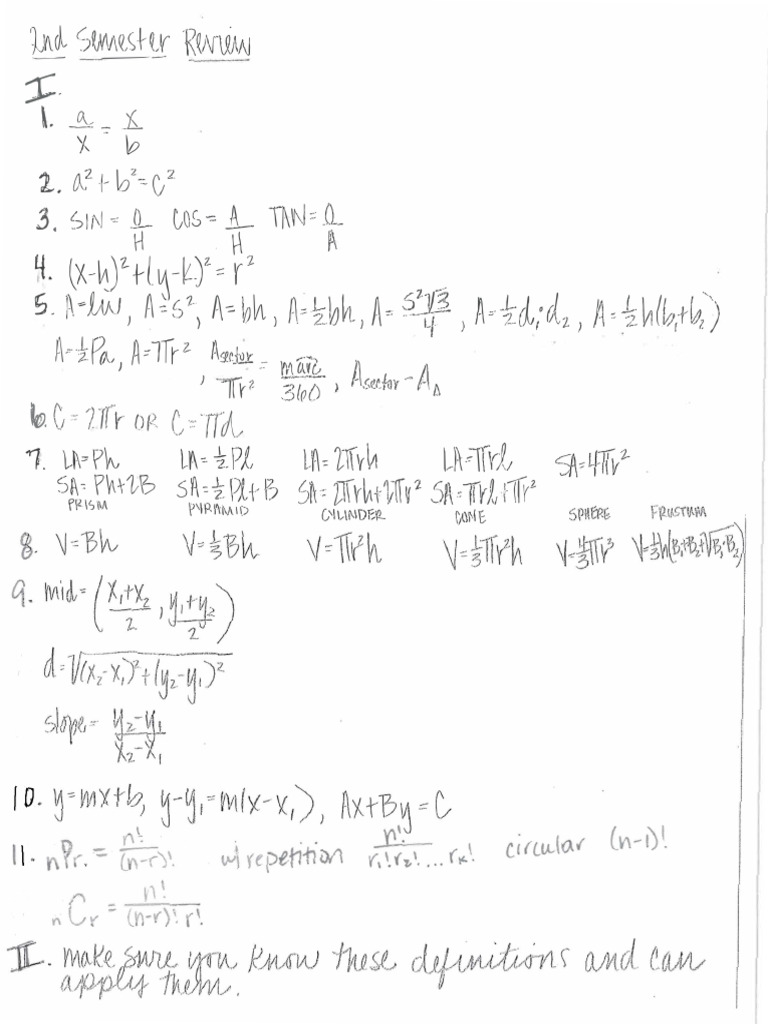 2nd Semester Review
I.
1. a/x = x/b
2. a²+b²=c²
3. SIN = O/H COS = A/H TAN = O/A
4. (x-h)²+(y-k)²=r²
5. A=lw, A=s², A=bh, A=½bh, A= s²√3/4, A=½d₁·d₂, A=½h(b₁+b₂)
A=½Pa, A=πr², Asector/πr² = marc/360, Asector-A△
6. C=2πr OR C=πd
7. LA=Ph LA=½Pl LA=2πrh LA=πrl SA=4πr²
SA=Ph+2B SA=½Pl+B SA=2πrh+2πr² SA=πrl+πr²
PRISM PYRAMID CYLINDER CONE SPHERE FRUSTUM
8. V=Bh V=⅓Bh V=πr²h V=⅓πr²h V=4/3πr³ V=⅓h(B₁+B₂+√B₁·B₂)
9. mid= (x₁+x₂/2, y₁+y₂/2)
d=√(x₂-x₁)²+(y₂-y₁)²
slope= y₂-y₁/x₂-x₁
10. y=mx+b, y-y₁=m(x-x₁), Ax+By=C
11. nPr. = n!/(n-r)! w/repetition n!/r₁!r₂!...rₓ! circular (n-1)!
nCr = n!/(n-r)!r!
II. make sure you know these definitions and can
apply them.